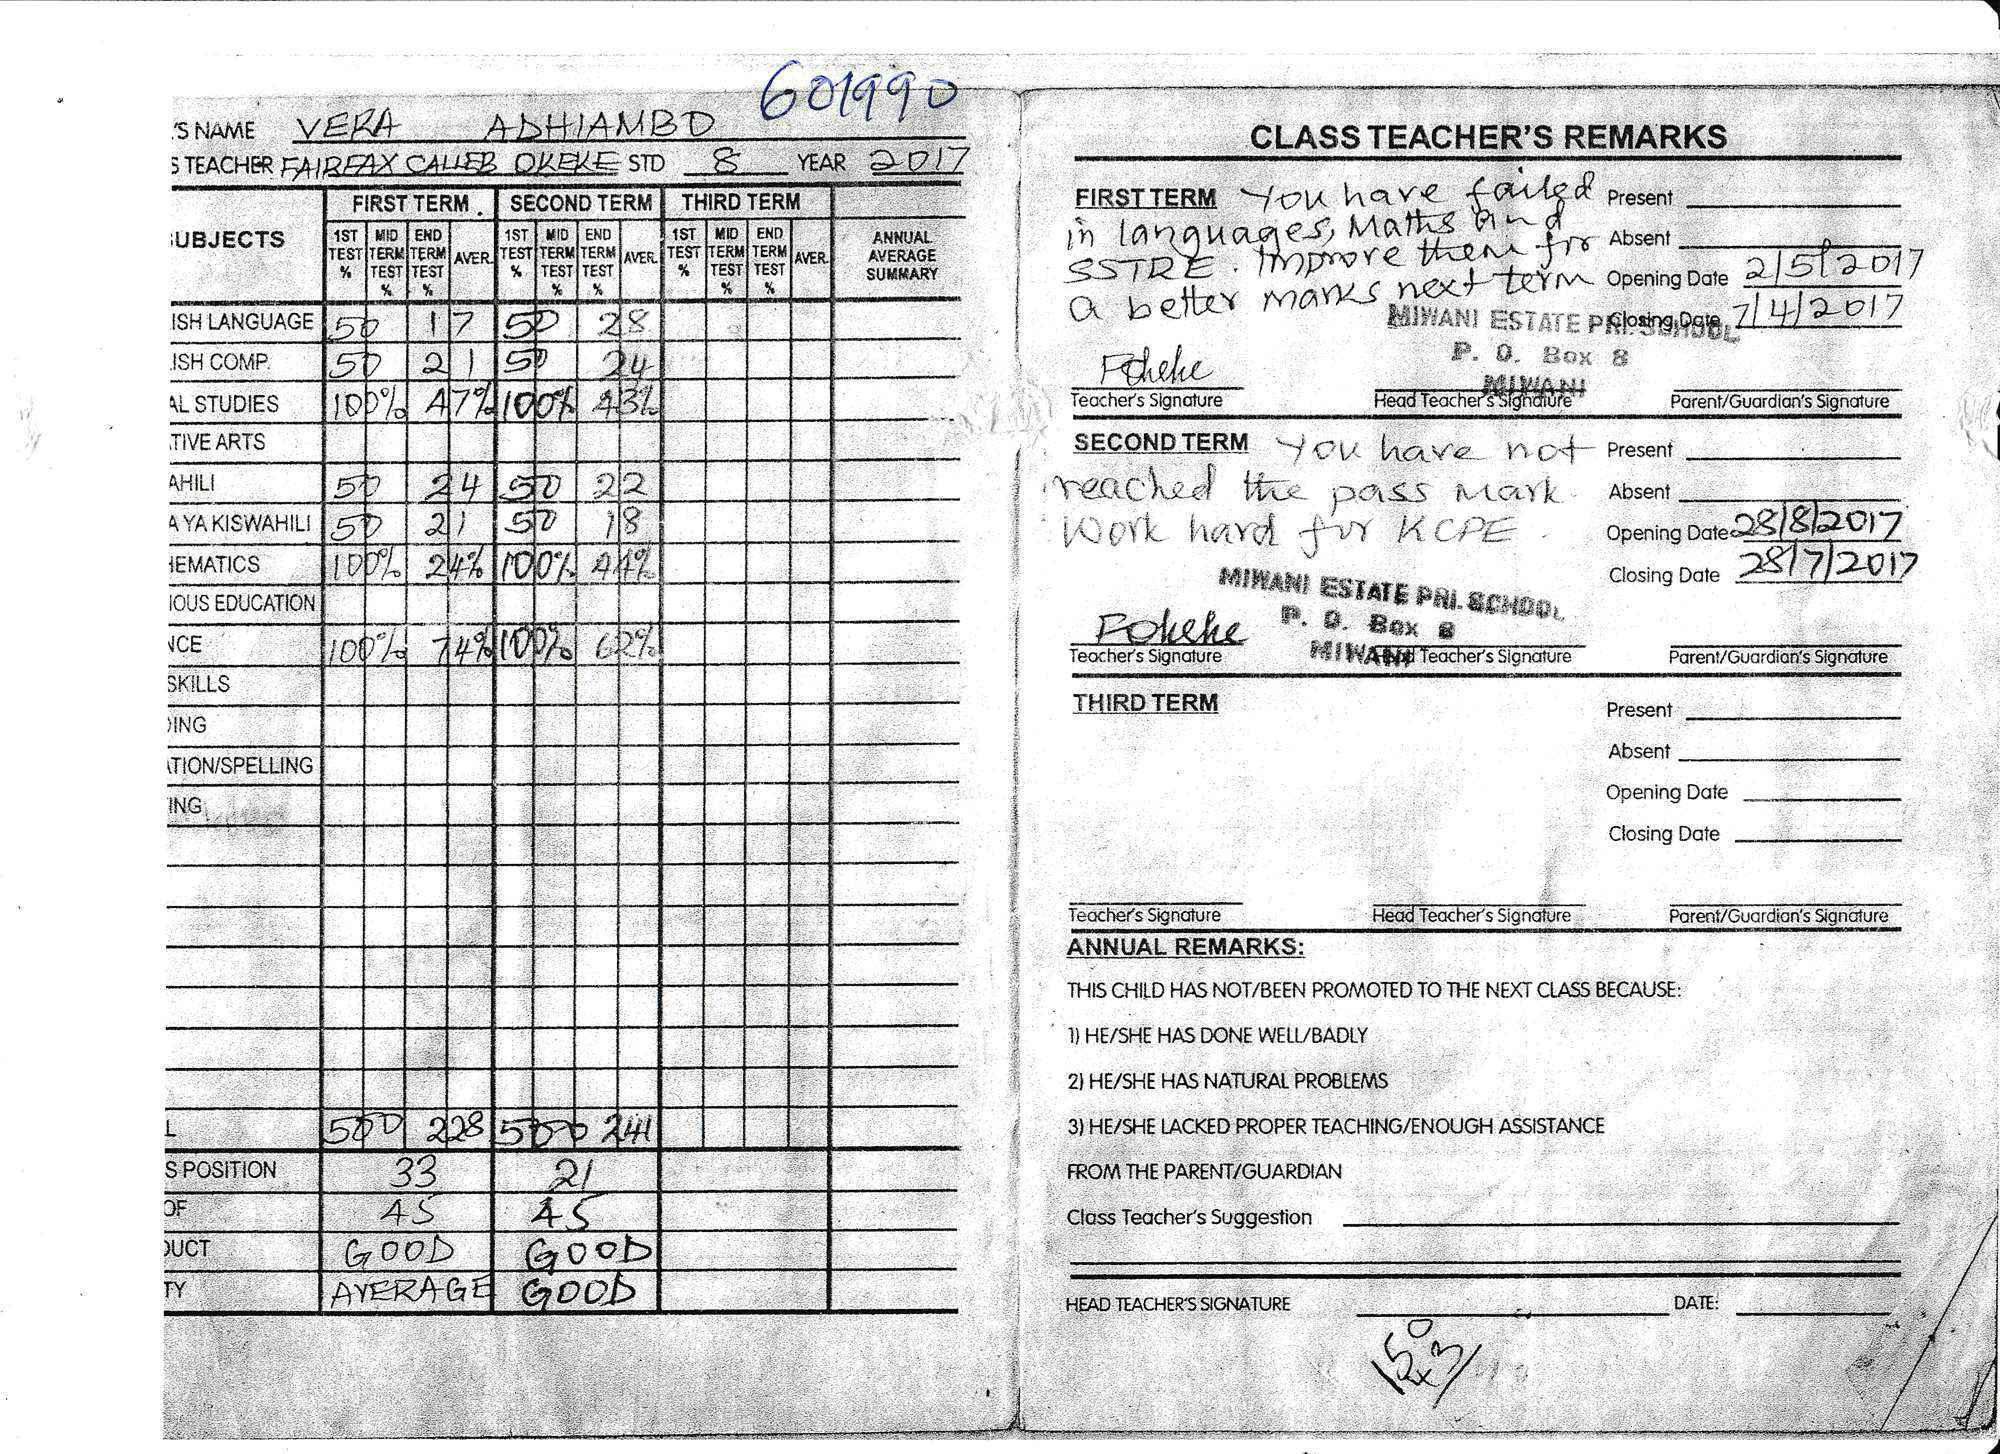 601990
'S NAME VERA ADHIAMBO
S TEACHER FAIRFAX CALLEB OKEKE STD 8 YEAR 2017
UBJECTS FIRST TERM SECOND TERM THIRD TERM ANNUAL AVERAGE SUMMARY
1ST TEST % MID TERM TEST % END TERM TEST % AVER. 1ST TEST % MID TERM TEST % END TERM TEST % AVER. 1ST TEST % MID TERM TEST % END TERM TEST % AVER.
ISH LANGUAGE 50 17 50 28
ISH COMP. 50 21 50 24
AL STUDIES 100% 47% 100% 43%
TIVE ARTS
AHILI 50 24 50 22
A YA KISWAHILI 50 21 50 18
HEMATICS 100% 24% 100% 44%
IOUS EDUCATION
NCE 100% 74% 100% 62%
SKILLS
DING
ATION/SPELLING
ING
L 500 228 500 241
S POSITION 33 21
OF 45 45
DUCT GOOD GOOD
TY AVERAGE GOOD
CLASS TEACHER'S REMARKS
FIRST TERM You have failed Present
in languages, Maths and Absent
SSTRE. Improve them for Opening Date 2/5/2017
a better marks next term
Closing Date 7/4/2017
MIWANI ESTATE PRI. SCHOOL
P. O. Box 8
MIWANI
Fokeke
Teacher's Signature Head Teacher's Signature Parent/Guardian's Signature
SECOND TERM You have not Present
reached the pass mark. Absent
Work hard for KCPE. Opening Date 28/8/2017
Closing Date 28/7/2017
MIWANI ESTATE PRI. SCHOOL
P. O. Box 8
MIWANI
Fokeke
Teacher's Signature Head Teacher's Signature Parent/Guardian's Signature
THIRD TERM Present
Absent
Opening Date
Closing Date
Teacher's Signature Head Teacher's Signature Parent/Guardian's Signature
ANNUAL REMARKS:
THIS CHILD HAS NOT/BEEN PROMOTED TO THE NEXT CLASS BECAUSE:
1) HE/SHE HAS DONE WELL/BADLY
2) HE/SHE HAS NATURAL PROBLEMS
3) HE/SHE LACKED PROPER TEACHING/ENOUGH ASSISTANCE
FROM THE PARENT/GUARDIAN
Class Teacher's Suggestion
HEAD TEACHER'S SIGNATURE DATE: